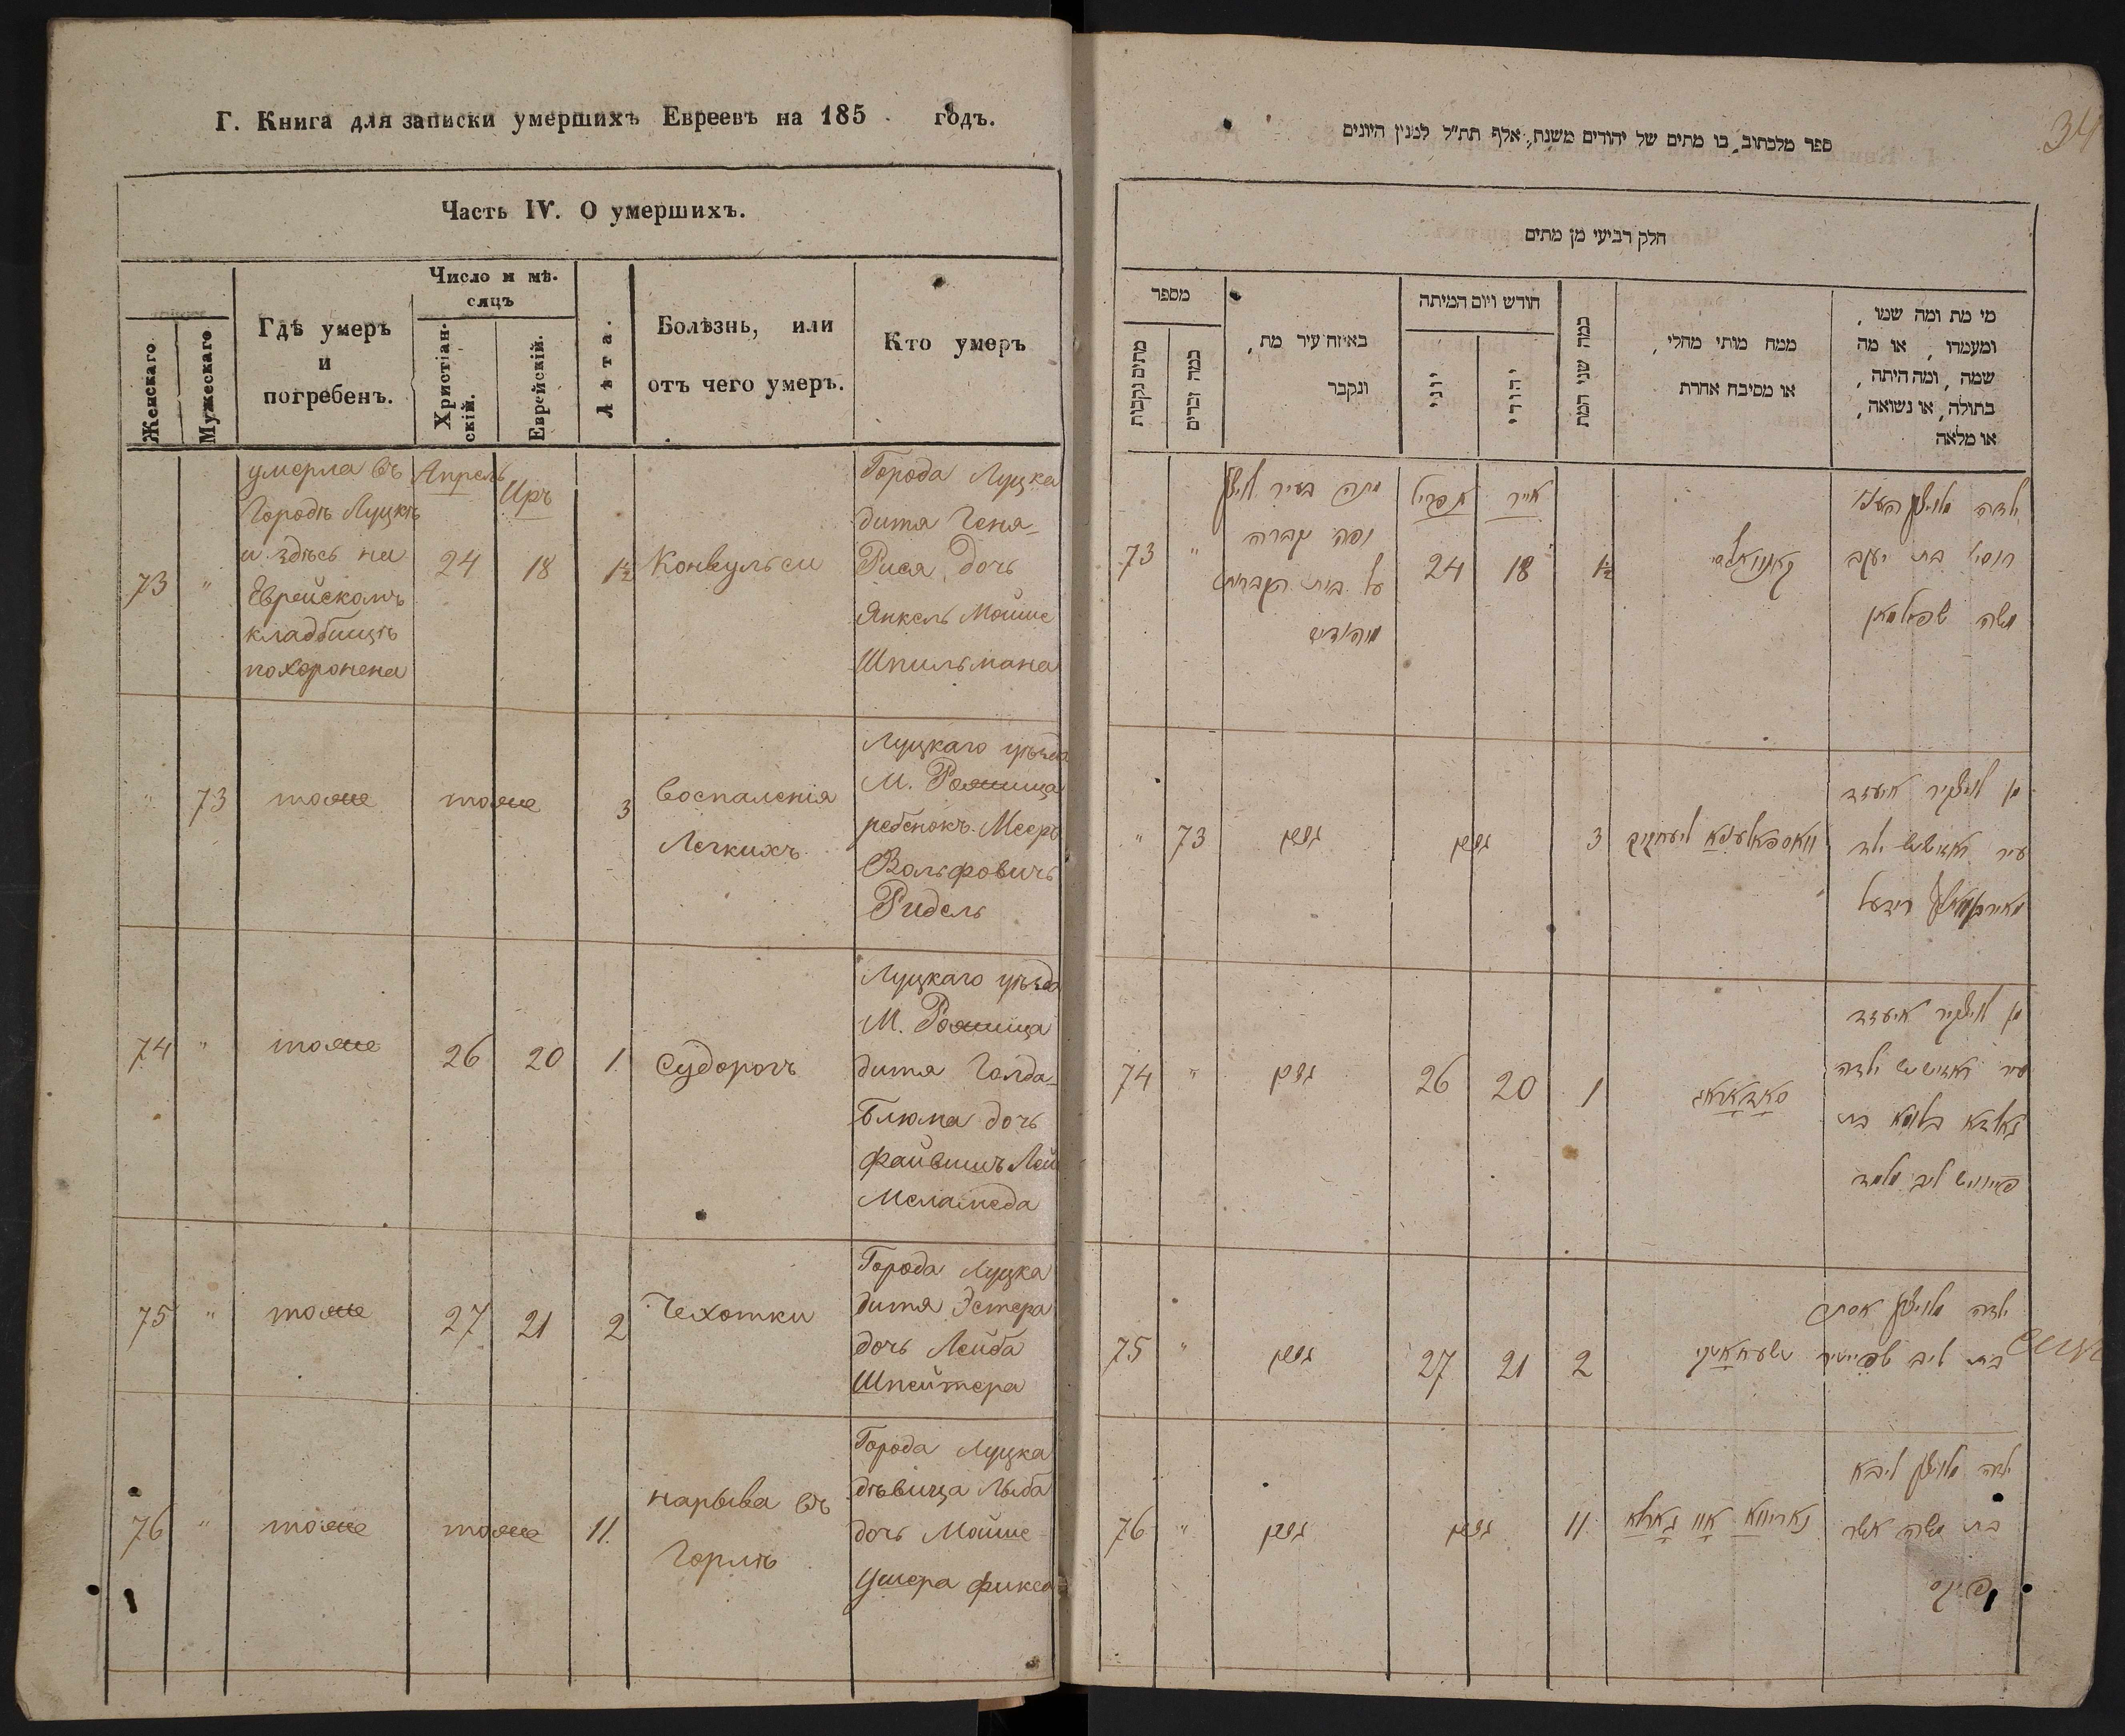 Г. Книга для записки умершихъ Евреевъ на 185 годъ.
Часть IV. О умершихъ.
Женскаго
Мужескаго
Гдѣ умеръ
и
погребенъ.
Число и мѣ-
сяцъ
Христіан-
скій.
Еврейскій.
Лѣта.
Болѣзнь, или
отъ чего умеръ.
Кто умеръ
73
"
умерла въ
Городѣ Луцкѣ
и здѣсь на
Еврейскомъ
кладбищѣ
похоронена
Апрель
24
Иръ
18
1½
Конвульсіи
Города Луцка
дитя Геня-
Рися дочь
Янкель Мойше
Шпильмана
"
73
тоже
тоже
3
Воспаленія
Легкихъ
Луцкаго уѣзда
М. Рожища
ребенокъ Мееръ
Вольфовичъ
Ридель
74
"
тоже
26
20
1
Судорогъ
Луцкаго уѣзда
М. Рожища
дитя Голда-
Блюма дочь
Файвишъ Лей
Меламеда
75
"
тоже
27
21
2
Чехотки
Города Луцка
дитя Эстера
дочь Лейба
Шпейтера
76
"
тоже
тоже
11.
нарыва въ
Горлѣ
Города Луцка
дѣвица Лыба
дочь Мойше
Ушера Фикса
34
ספר מלכתוב בו מתים של יהודים משנת אלף תת"ל למנין היונים
חלק רביעי מן מתים
מספר
מתים נקבות
במה זכרים
באיזה עיר מת,
ונקבר
חודש ויום המיתה
יוני
יהודי
כמה שני המת
ממה מותי מחלי,
או מסיבה אחרת
מי מת ומה שמו,
ומעמדו, או מה
שמה, ומה היתה,
בתולה, או נשואה,
או מלאה
73
"
מתה בעיר לויצק
ופה קברה
על בית הקברות
אפריל
24
אייר
18
1½
קאנוואלסי
ילדה מלויצק
בת יעקב
משה שפילמאן
"
73
3
מן לויצקיר
עיר ראזישטש ילד
רידעל
74
"
26
20
1
סאדאראג
מן לויצקיר
עיר ראזישטש ילדה
גאלדא בלומא בת
פייוויש ליב מלמד
75
"
27
21
2
ילדה מלויצק אסתר
בת ליב שפייטיר
76
"
11
נאריווא או גארלא
ילדה מלויצק ליבא
בת משה אשר
פיקס